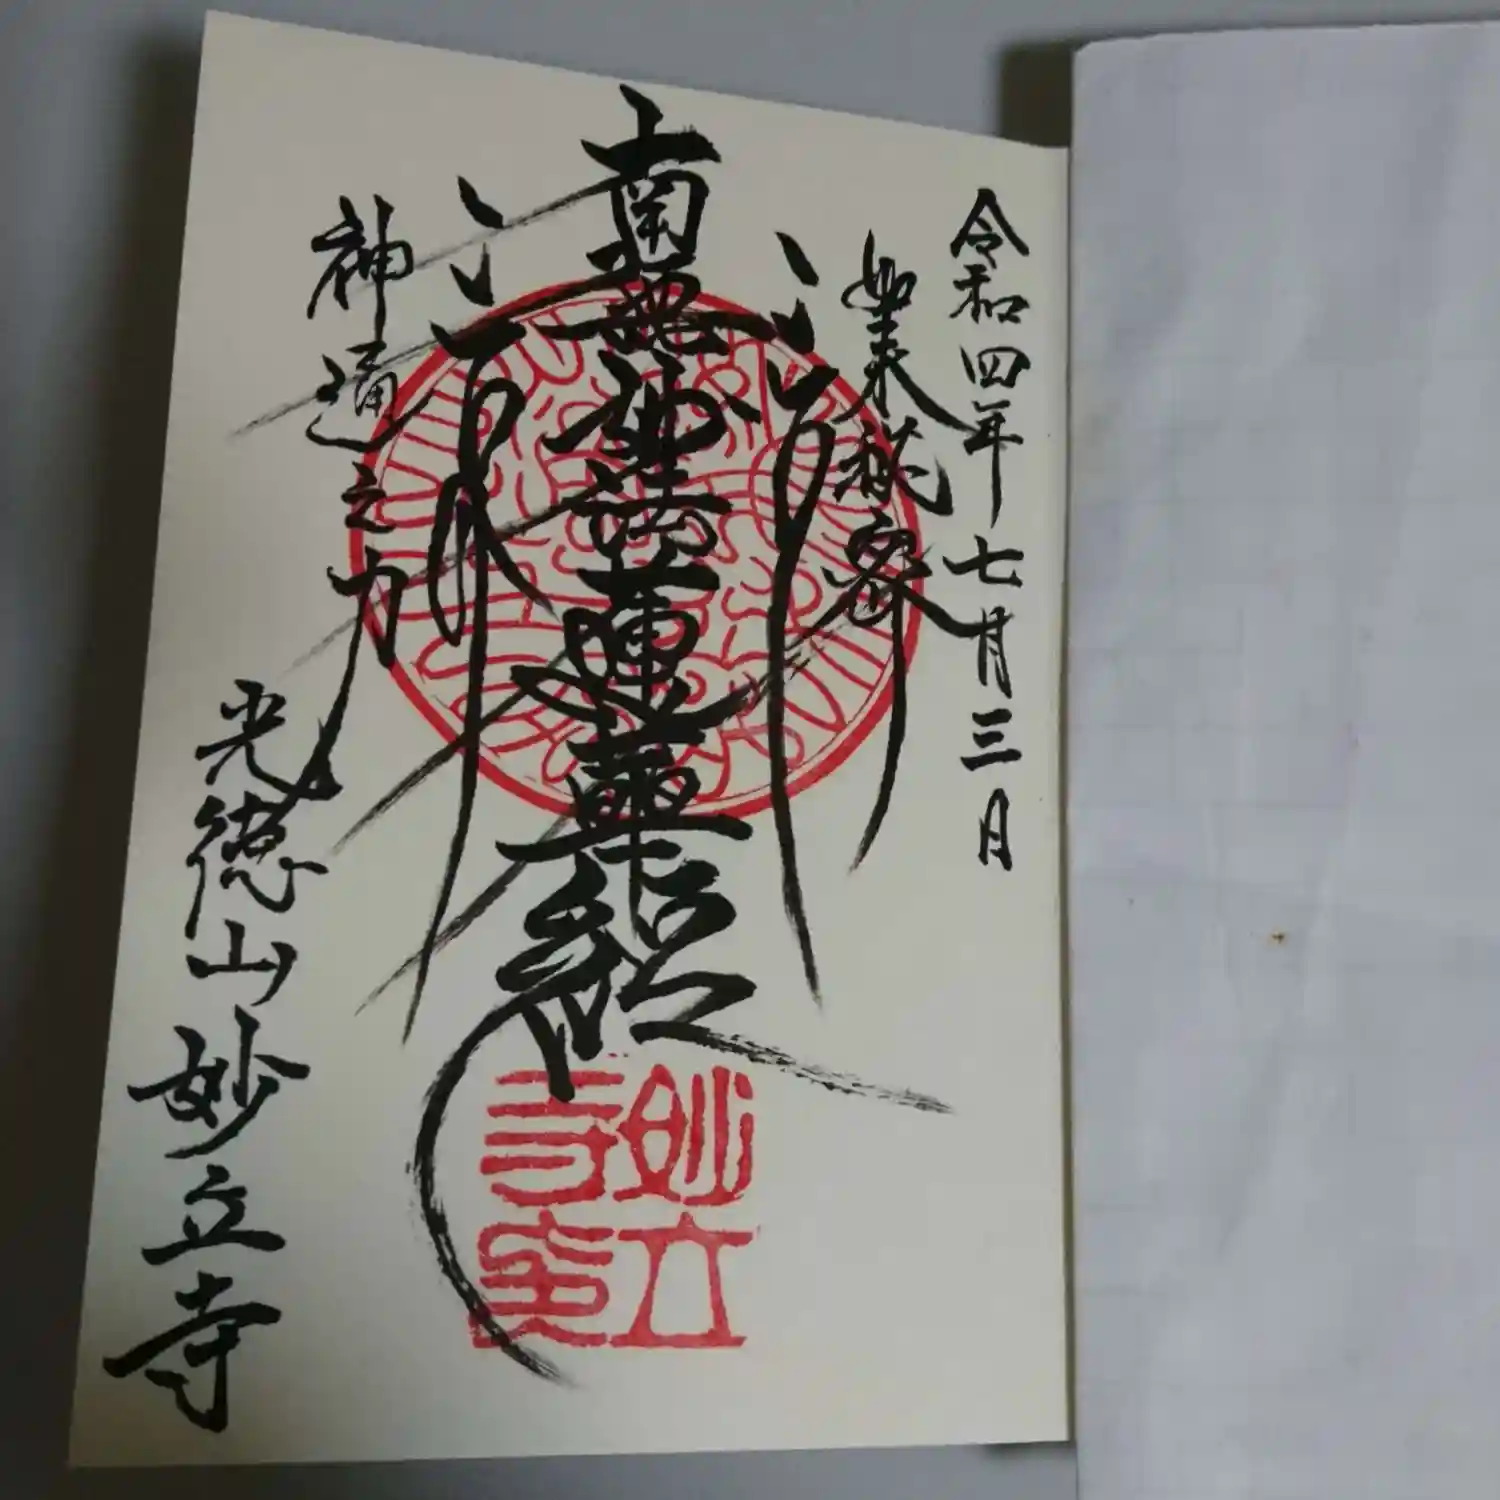 令和四年七月三日
如来秘密
南無妙法蓮華経
神通之力
光徳山妙立寺
妙立
寺